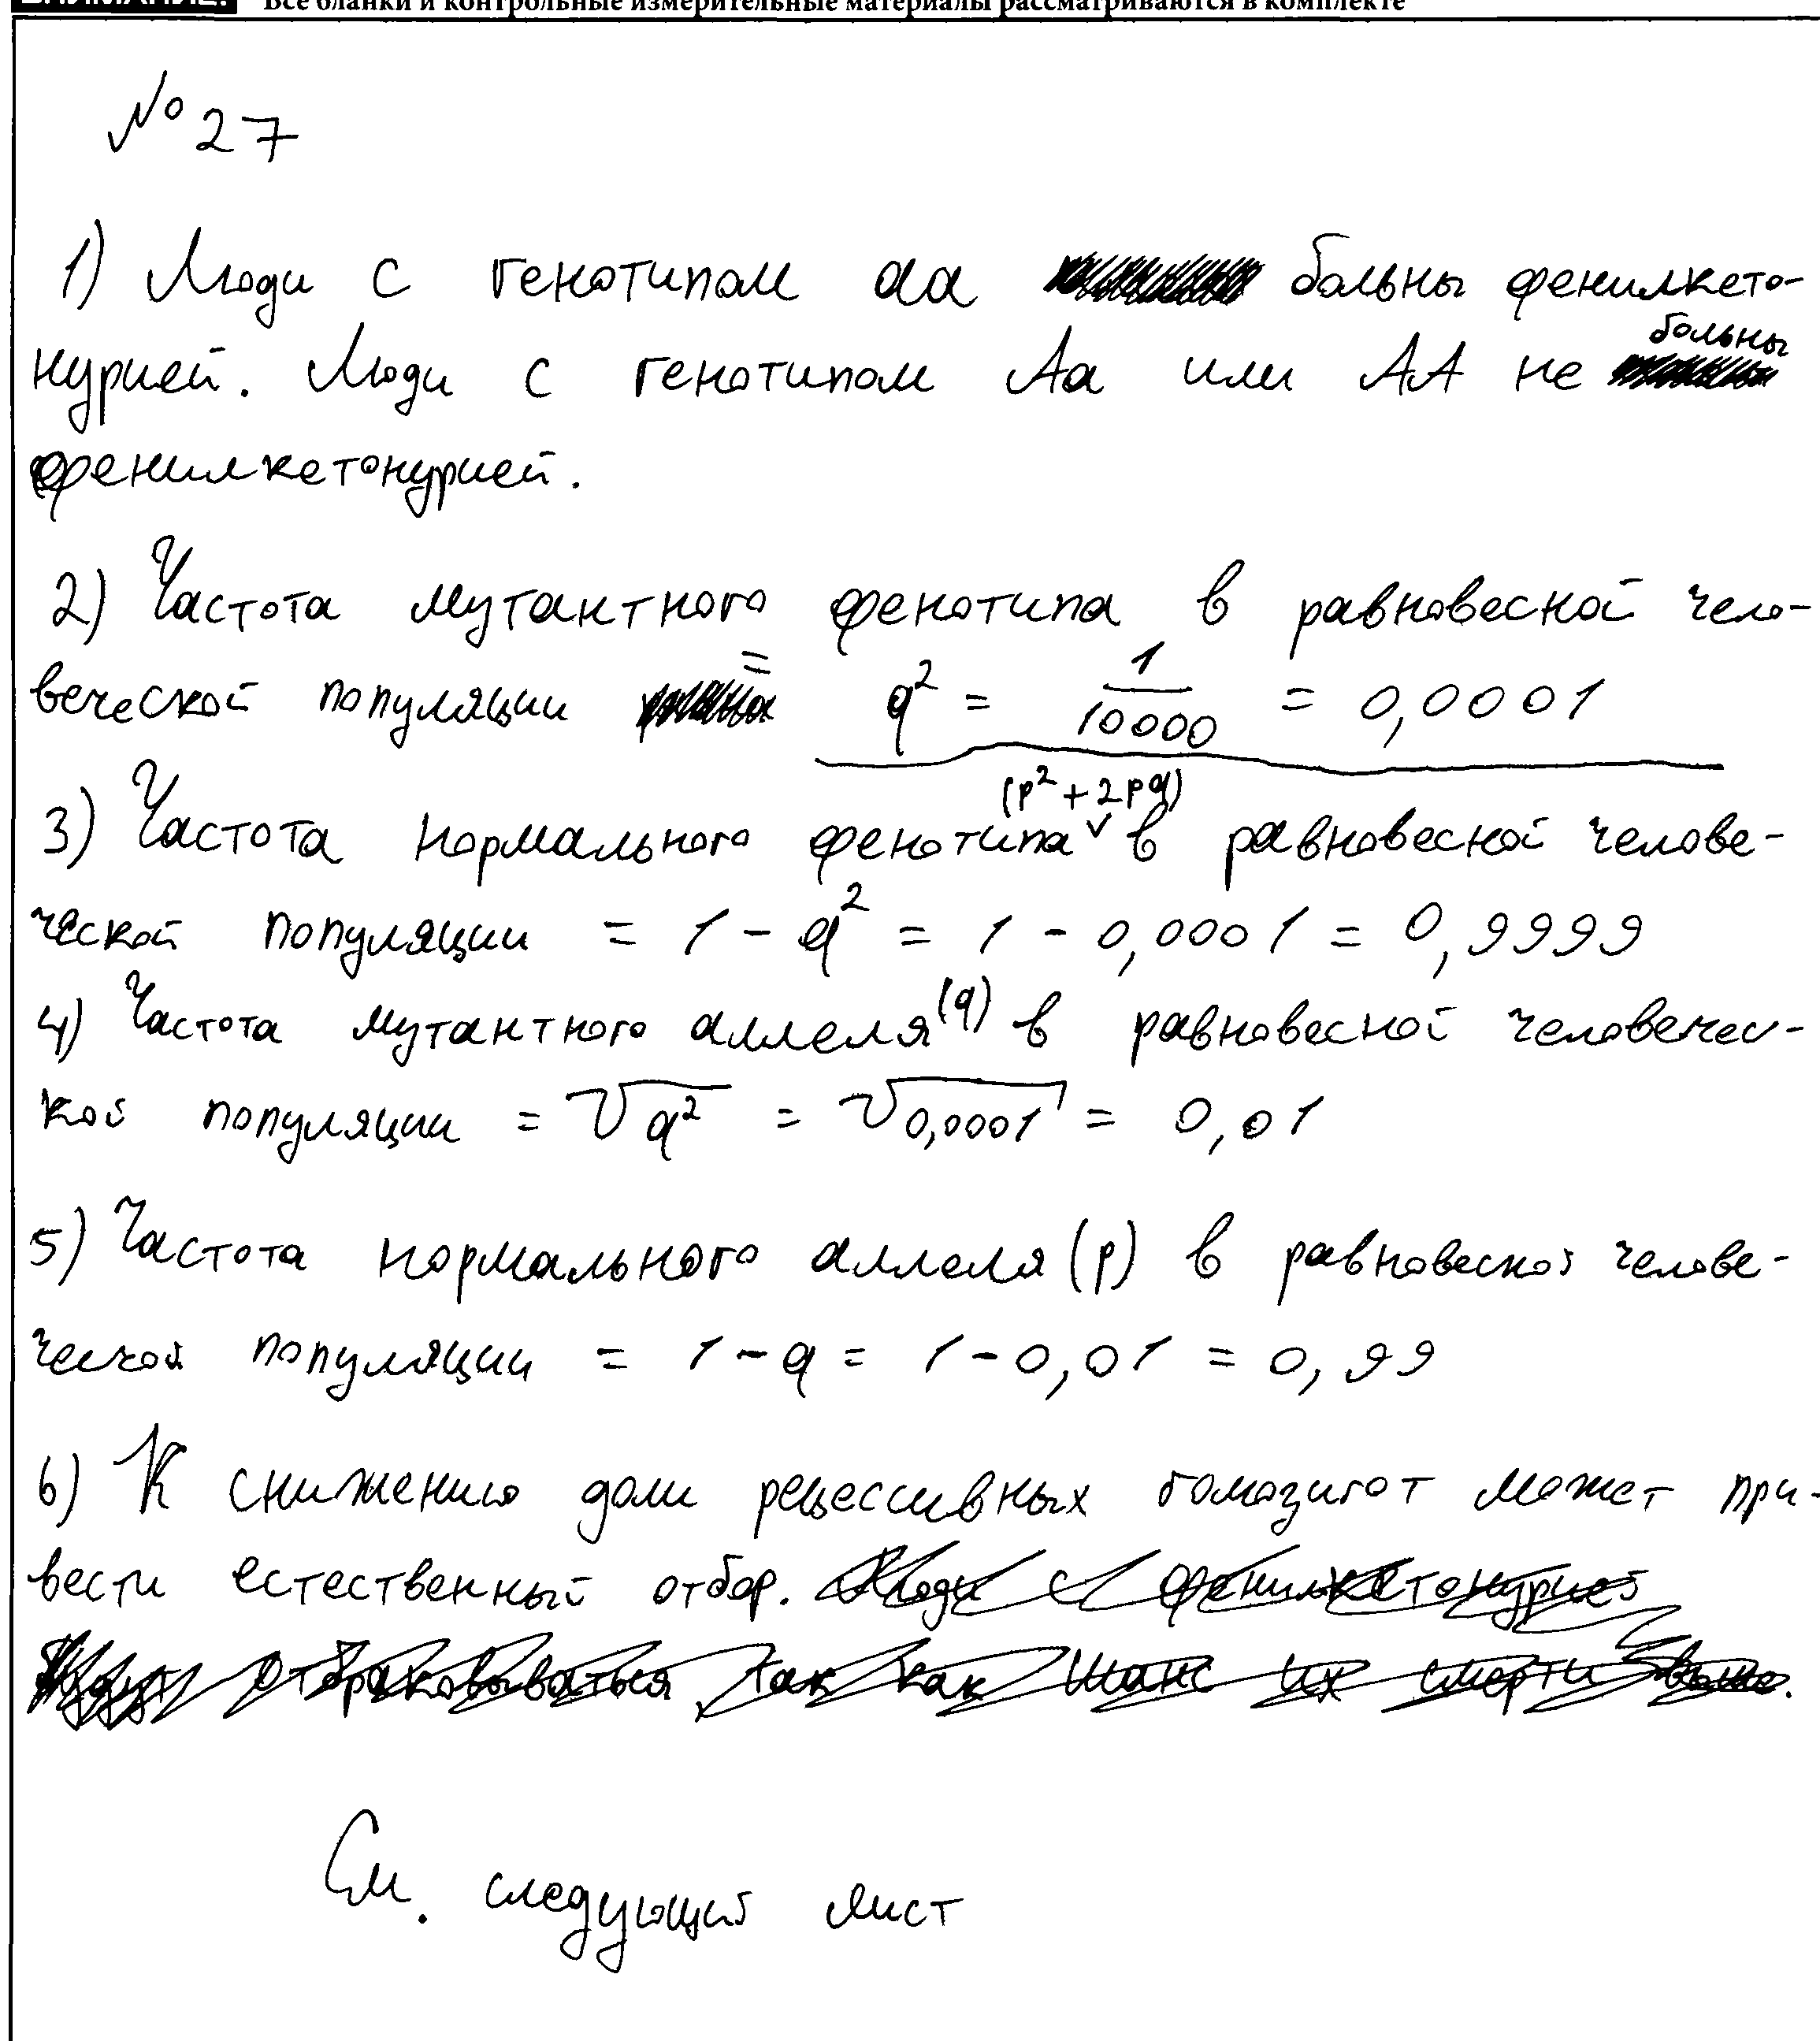 ВНИМАНИЕ! Все бланки и контрольные измерительные материалы рассматриваются в комплекте
№ 27
1) Люди с генотипом аа больны фенилкето-
нурией. Люди с генотипом Аа или АА не больны
фенилкетонурией.
2) Частота мутантного фенотипа в равновесной чело-
веческой популяции = q² = 1/10000 = 0,0001
3) Частота нормального фенотипа (p² + 2pq) в равновесной челове-
ческой популяции = 1 - q² = 1 - 0,0001 = 0,9999
4) Частота мутантного аллеля (q) в равновесной человечес-
кой популяции = √q² = √0,0001 = 0,01
5) Частота нормального аллеля (p) в равновесной челове-
ческой популяции = 1 - q = 1 - 0,01 = 0,99
6) К снижению доли рецессивных гомозигот может при-
вести естественный отбор. Люди с фенилкетонурией
будут отбраковываться, так как шанс их смерти выше.
См. следующий лист